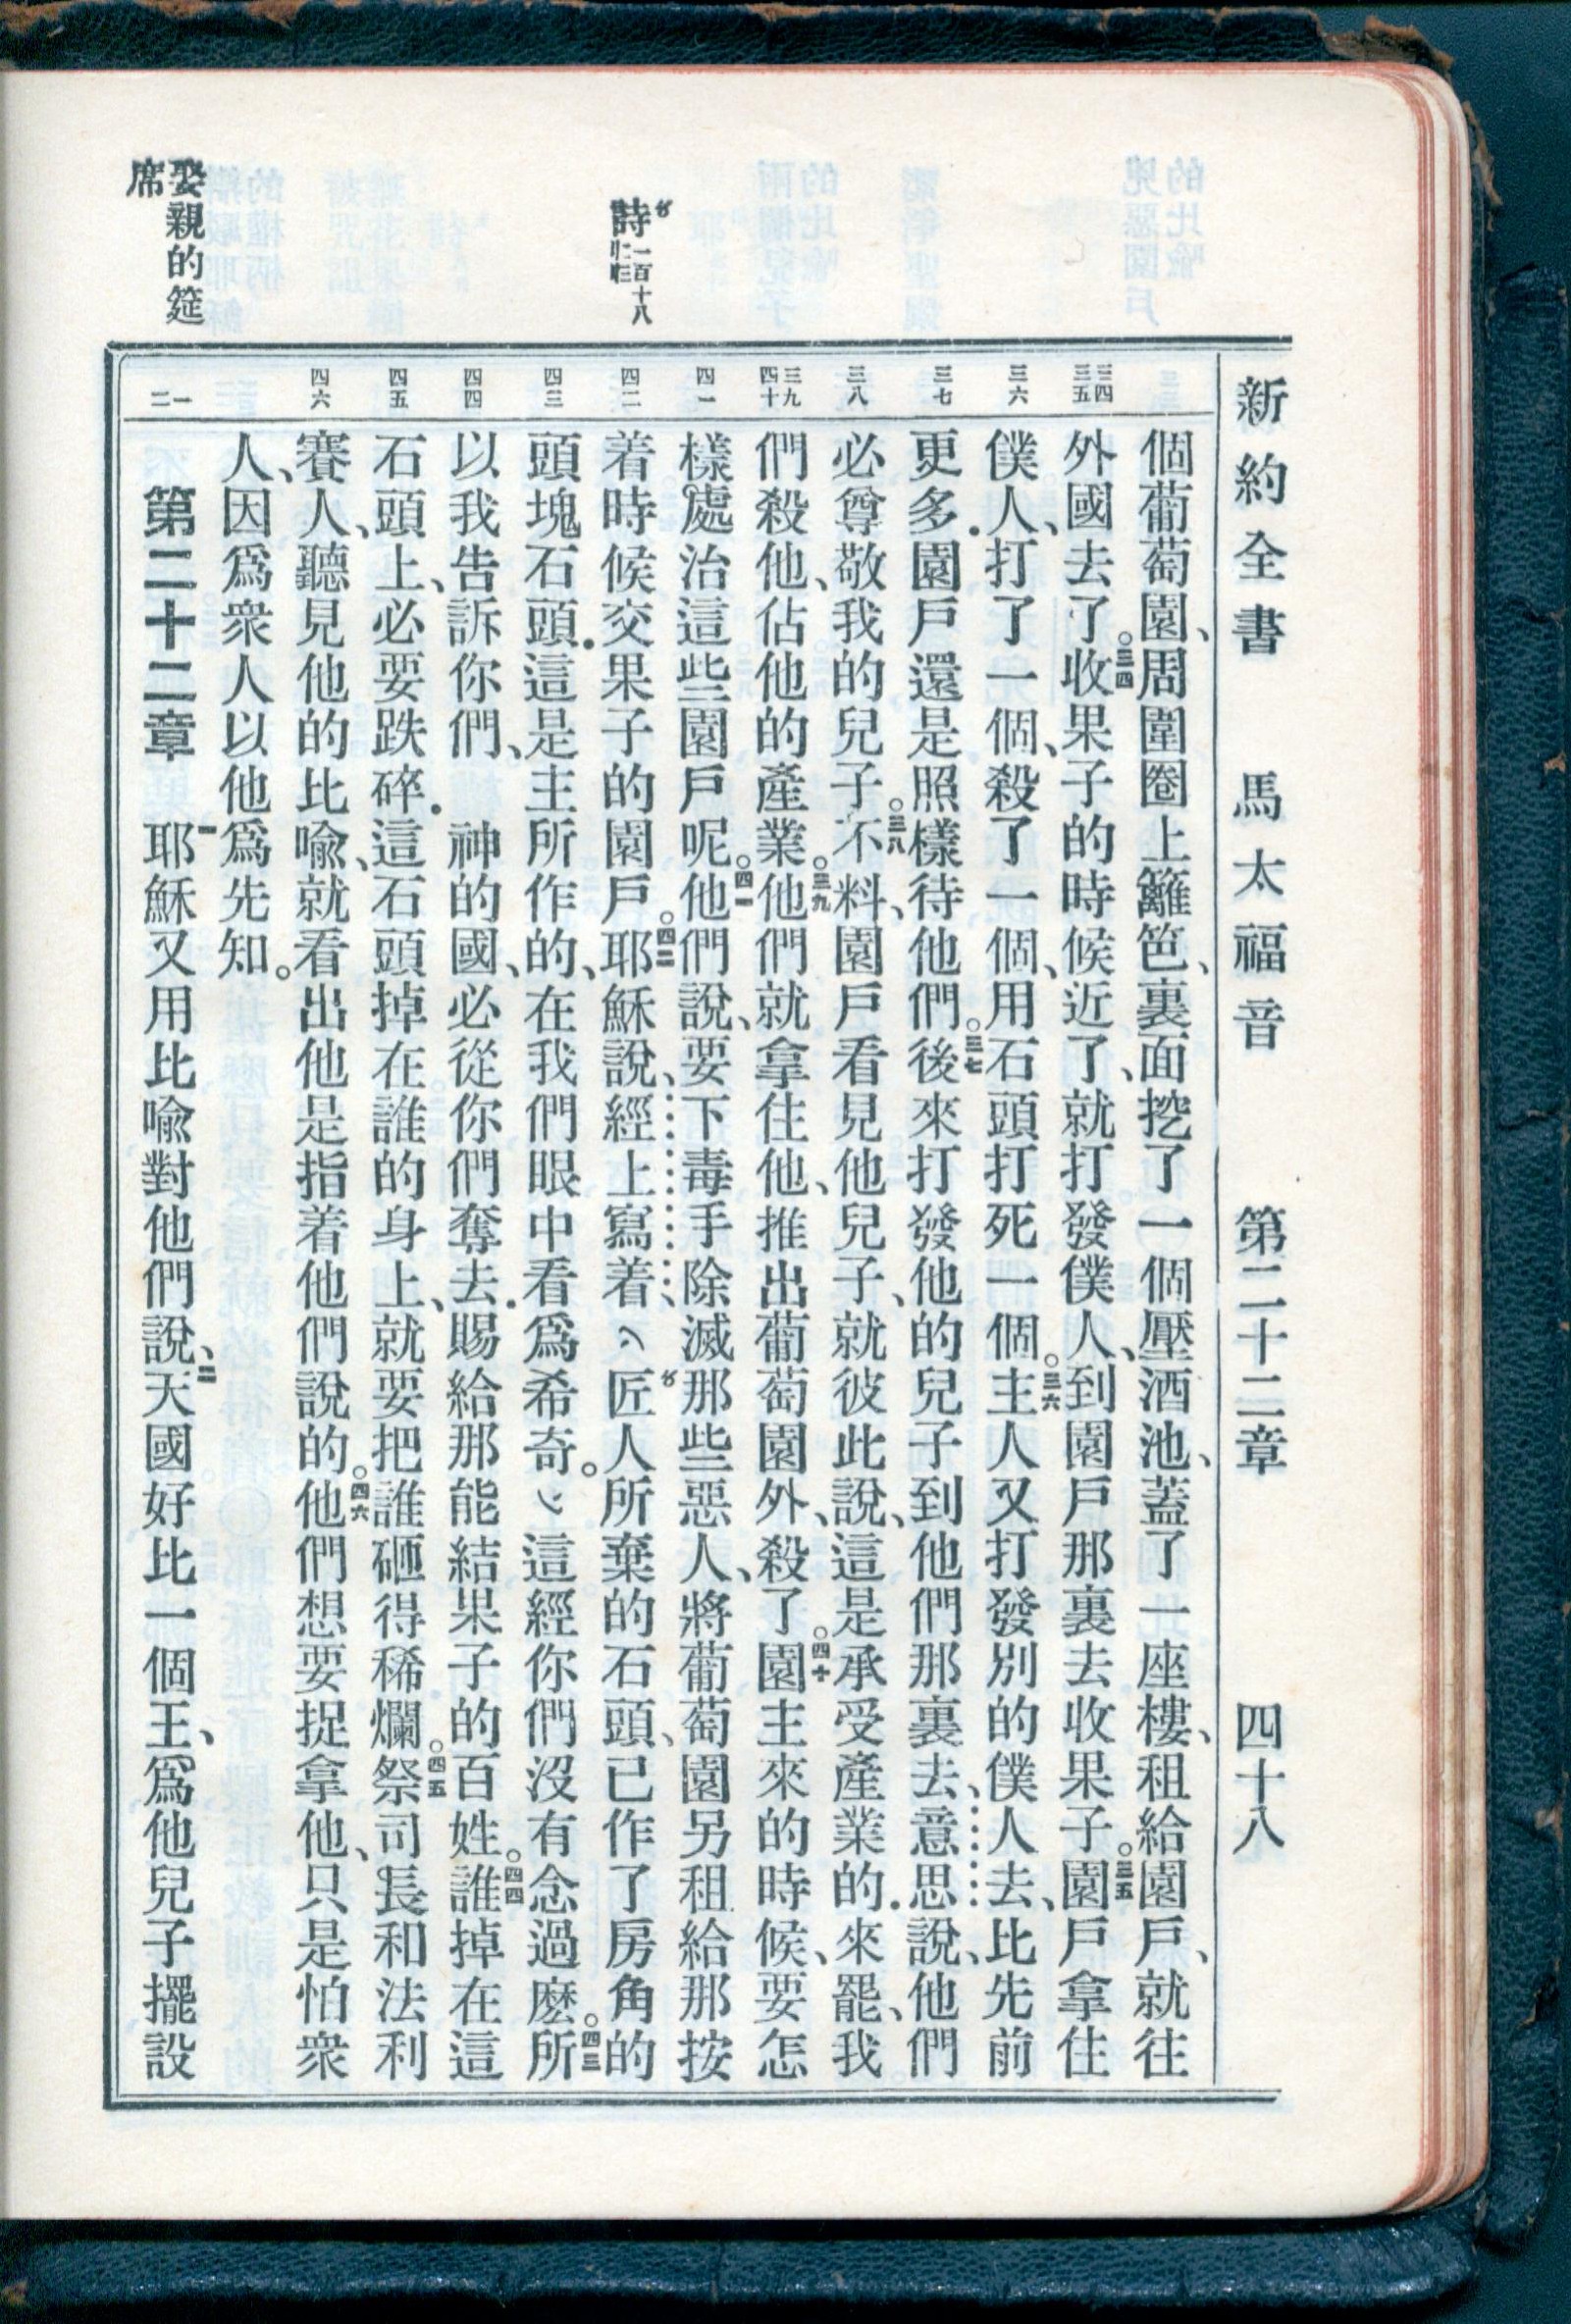 新約全書 馬太福音 第二十二章 四十八
三四
三五
三六
三七
三八
三九
四十
四一
四二
四三
四四
四五
四六
一
二
詩一百十八
娶親的筵
席
個葡萄園、周圍圈上籬笆、裏面挖了一個壓酒池、蓋了一座樓、租給園戶、就往
外國去了。三四收果子的時候近了、就打發僕人、到園戶那裏去收果子。三五園戶拿住
僕人、打了一個、殺了一個、用石頭打死一個。三六主人又打發別的僕人去、比先前
更多．園戶還是照樣待他們。三七後來打發他的兒子到他們那裏去、意思說、他們
必尊敬我的兒子。三八不料、園戶看見他兒子、就彼此說、這是承受產業的．來罷、我
們殺他、佔他的產業。三九他們就拿住他、推出葡萄園外、殺了。四十園主來的時候、要怎
樣處治這些園戶呢。四一他們說、要下毒手除滅那些惡人、將葡萄園另租給那按
着時候交果子的園戶。四二耶穌說、經上寫着、〽匠人所棄的石頭、已作了房角的
頭塊石頭．這是主所作的、在我們眼中看爲希奇。這經你們沒有念過麽。四三所
以我告訴你們、 神的國、必從你們奪去．賜給那能結果子的百姓。四四誰掉在這
石頭上、必要跌碎．這石頭掉在誰的身上、就要把誰砸得稀爛。四五祭司長和法利
賽人、聽見他的比喻、就看出他是指着他們說的。四六他們想要捉拿他、只是怕衆
人、因爲衆人以他爲先知。
第二十二章 一耶穌又用比喻對他們說、二天國好比一個王、爲他兒子擺設